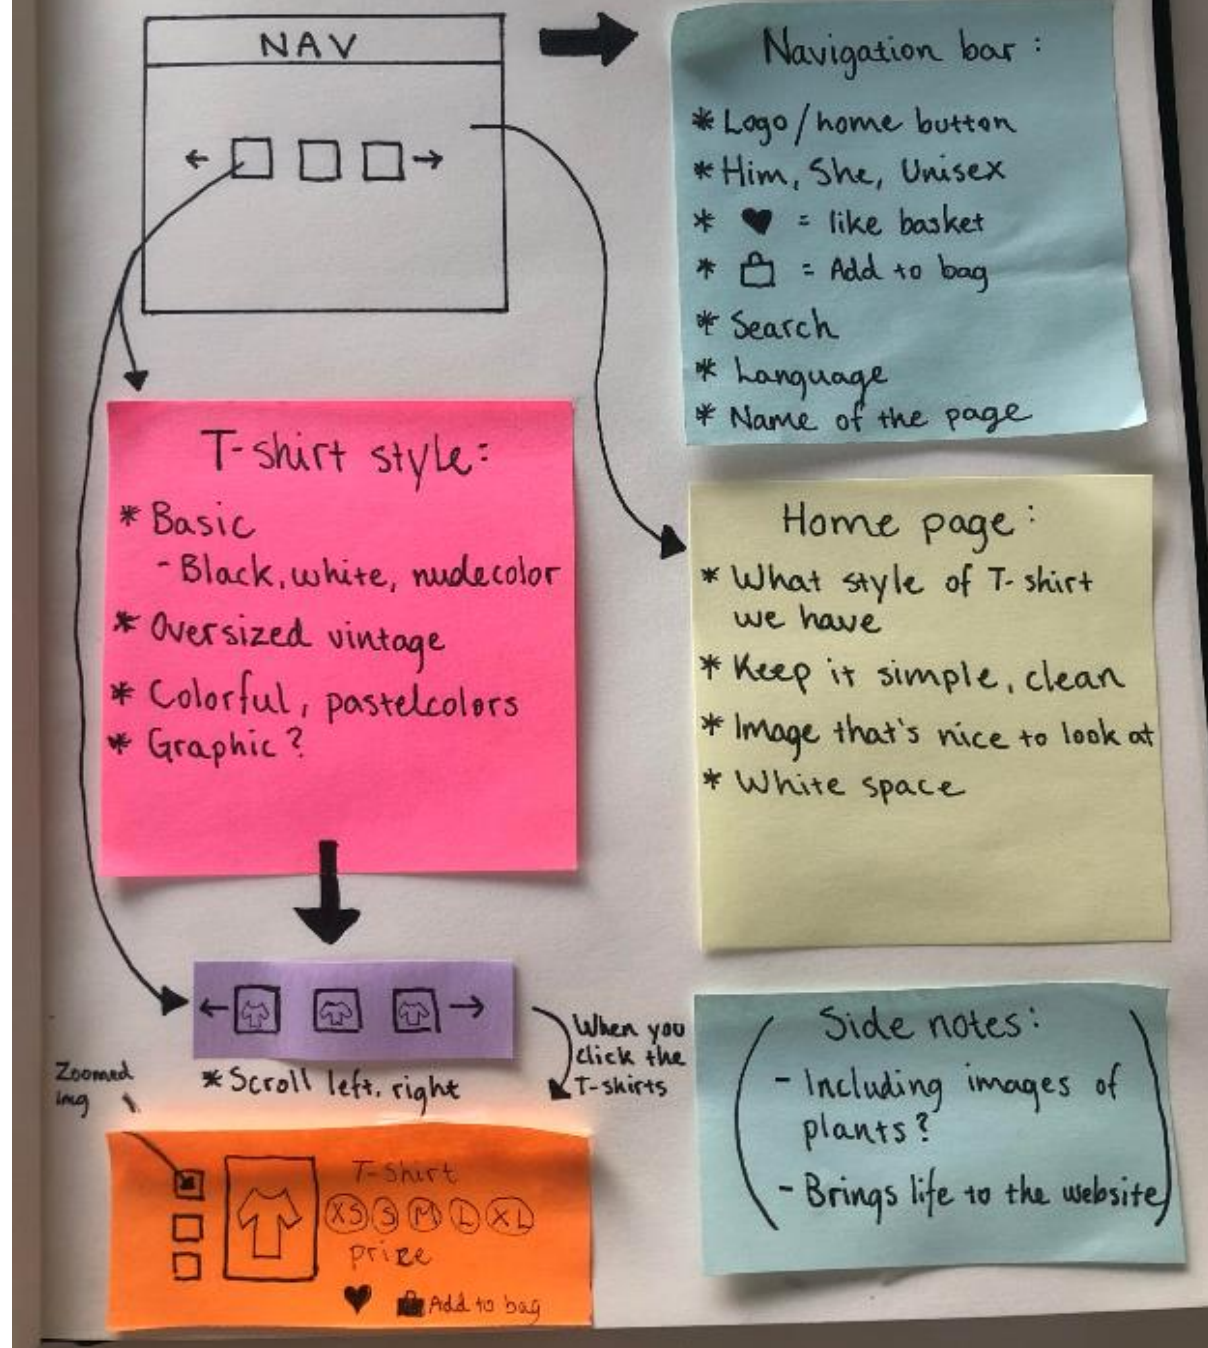 NAV
Navigation bar :
* Logo/home button
* Him, She, Unisex
* ♥ = like basket
* = Add to bag
* Search
* Language
* Name of the page
T-shirt style:
* Basic
- Black, white, nudecolor
* Oversized vintage
* Colorful, pastelcolors
* Graphic?
Home page :
* What style of T-shirt
we have
* Keep it simple, clean
* Image that's nice to look at
* White space
* Scroll left, right
When you
click the
T-shirts
Zoomed
img
T-shirt
XS S M L XL
price
♥ Add to bag
Side notes:
- Including images of
plants?
- Brings life to the website